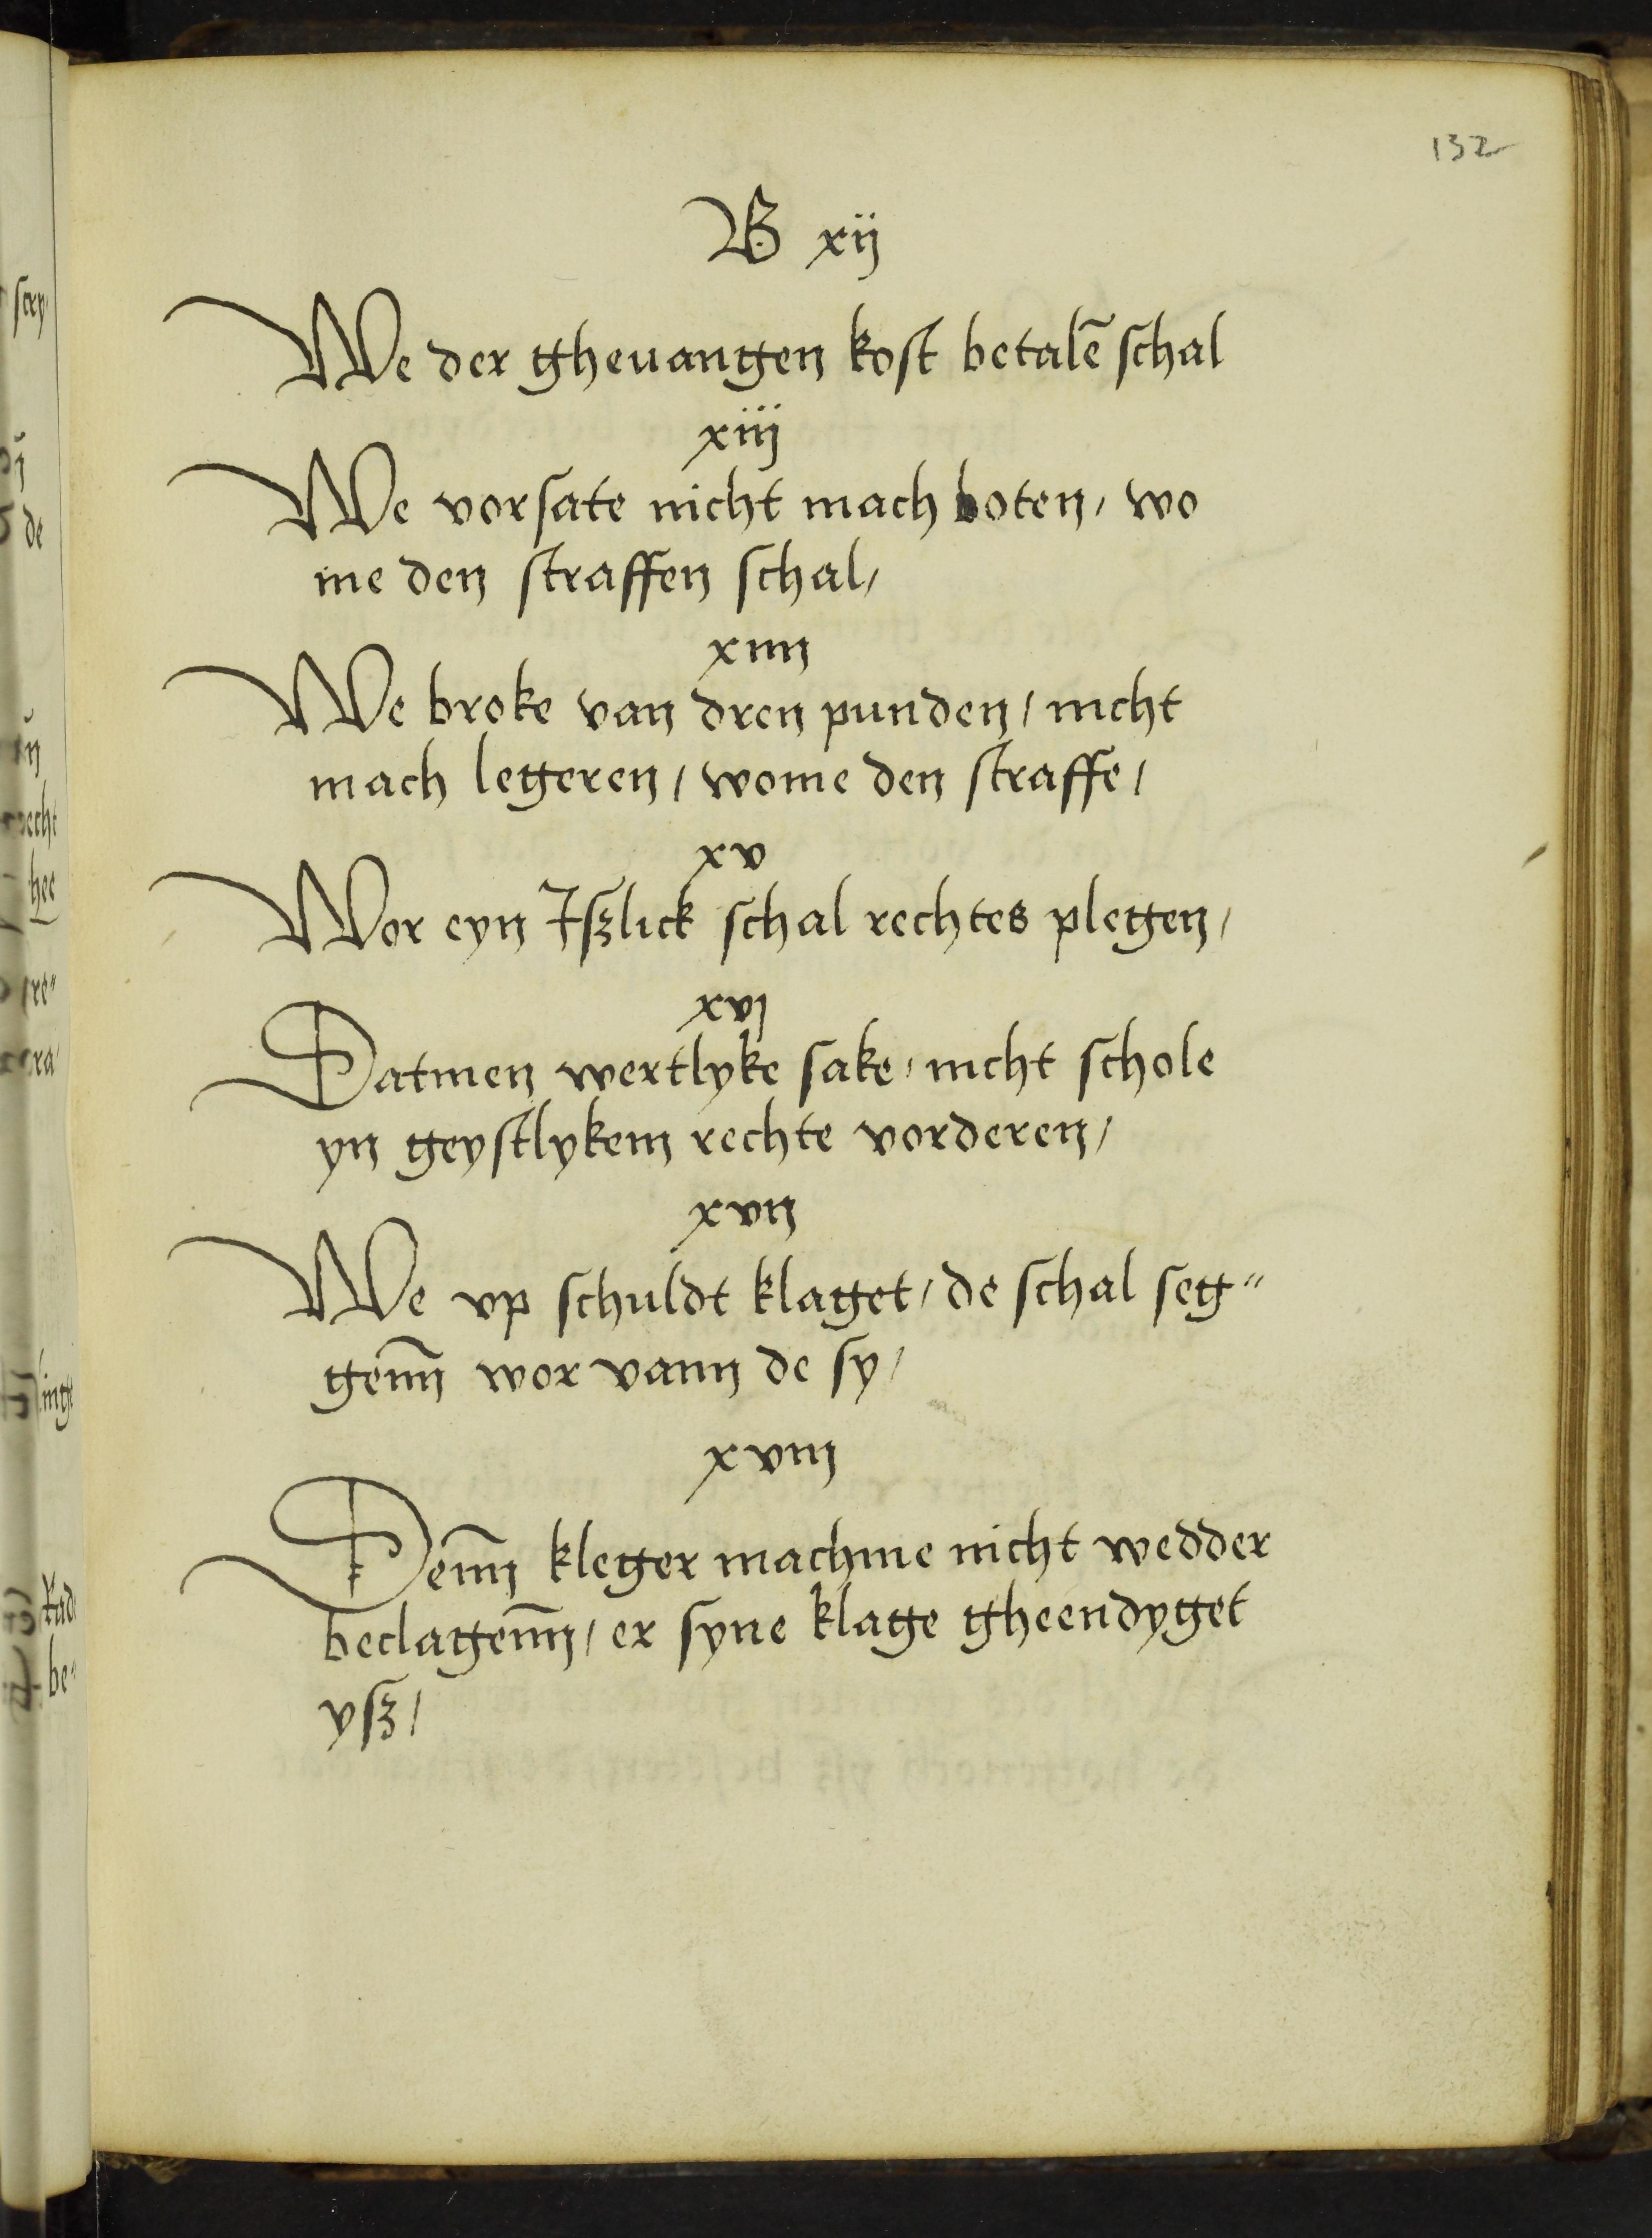 132
B xij
We der gheuangen kost betalē schal
xiij
We vorsate nicht mach boten, wo
me den straffen schal,
xiiij
We broke van dren punden, nicht
mach legeren, wome den straffe,
xv
Wor eyn Iſzlick schal rechtes plegen,
xvj
Datmen wertlyke sake, nicht schole
yn geystlykem rechte vorderen,
xvij
We vp schuldt klaget, de schal seg"
genn̄ wor vann de sy,
xviij
Denn̄ kleger machme nicht wedder
beclagenn̄, er syne klage gheendyget
yſz,